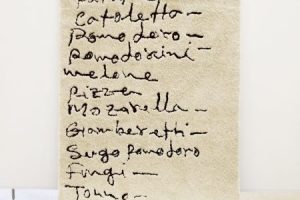 Catoletta -
Pomodoro -
Pomodorini -
melone
Pizza
Mozarella -
Giamberetti -
Sugo Pomodoro
Fungi -
Tonno -